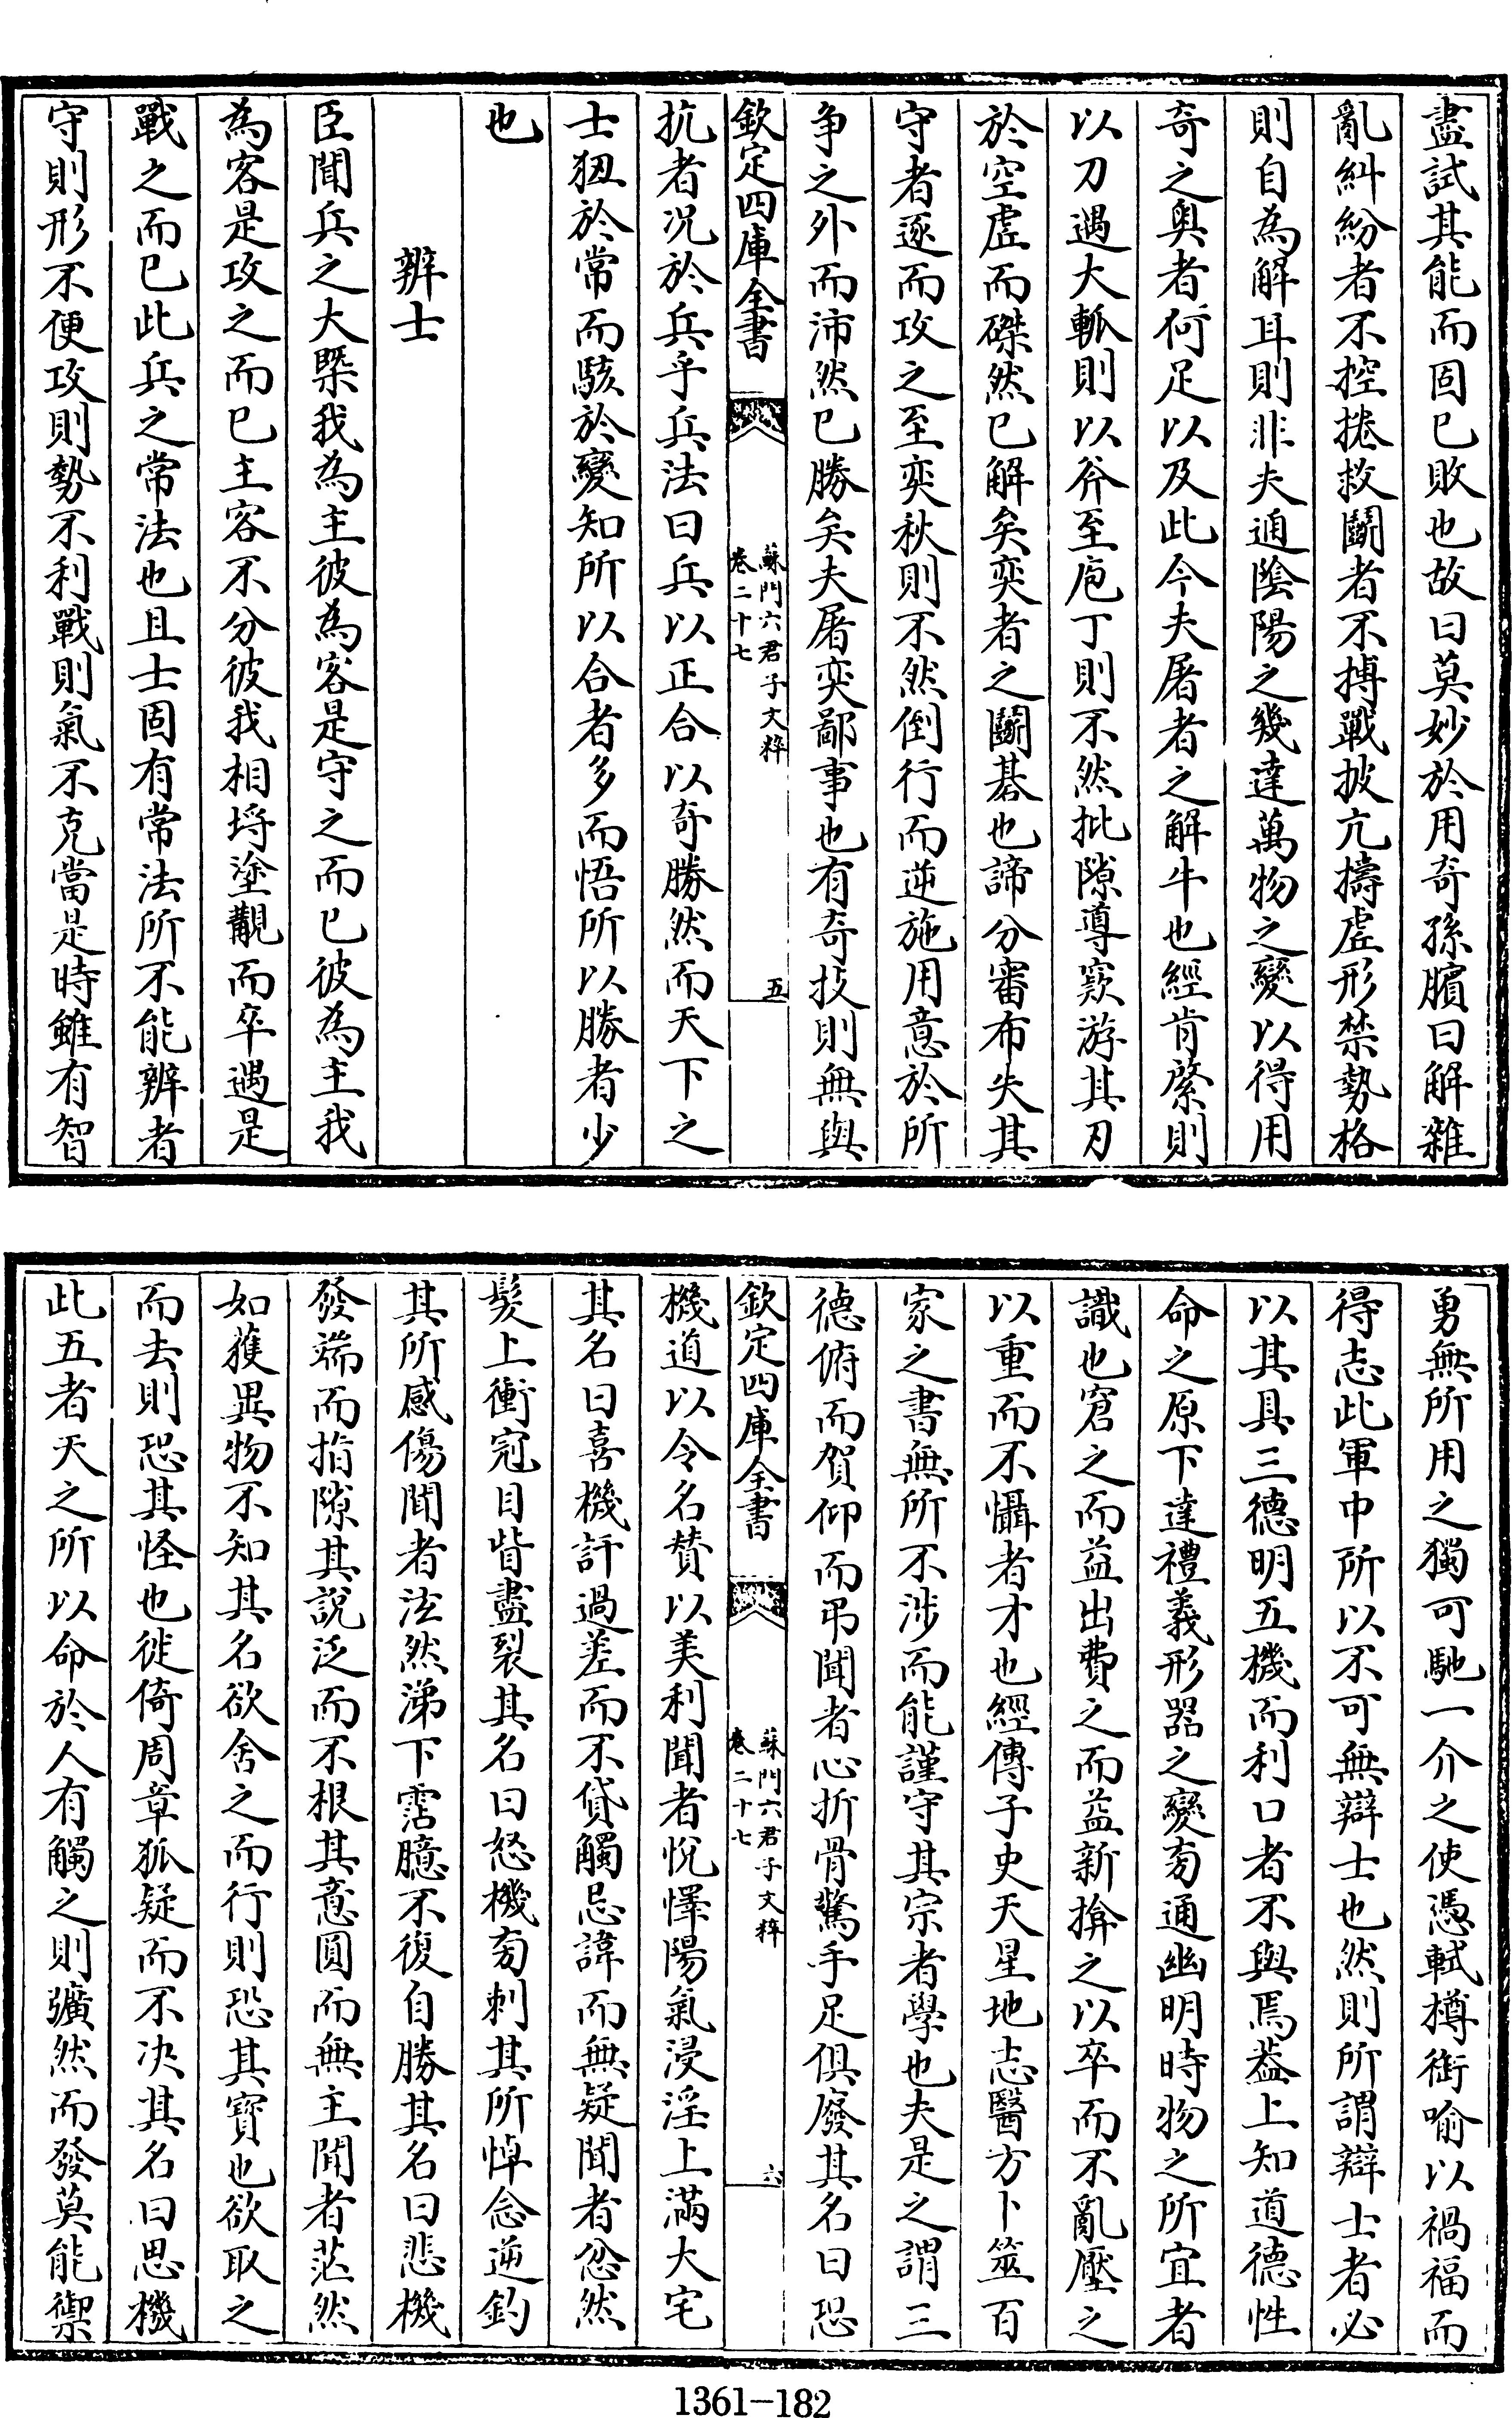 盡試其能而固已敗也故曰莫妙於用奇孫臏曰解雜
亂糾紛者不控捲救鬭者不搏戰披亢擣虛形禁勢格
則自為解耳則非夫通陰陽之幾達萬物之變以得用
奇之奥者何足以及此今夫屠者之解牛也經肯綮則
以刀遇大軱則以斧至庖丁則不然批隙導窾游其刃
於空虛而磔然已解矣奕者之鬭碁也諦分審布失其
守者逐而攻之至奕秋則不然倒行而逆施用意於所
争之外而沛然已勝矣夫屠奕鄙事也有奇技則無與
欽定四庫全書
蘇門六君子文粹
卷二十七
五
抗者况於兵乎兵法曰兵以正合以奇勝然而天下之
士狃於常而駭於變知所以合者多而悟所以勝者少
也
辨士
臣聞兵之大槩我為主彼為客是守之而已彼為主我
為客是攻之而已主客不分彼我相埒塗覯而卒遇是
戰之而已此兵之常法也且士固有常法所不能辨者
守則形不便攻則勢不利戰則氣不克當是時雖有智
勇無所用之獨可馳一介之使憑軾樽銜喻以禍福而
得志此軍中所以不可無辯士也然則所謂辯士者必
以其具三德明五機而利口者不與焉葢上知道德性
命之原下達禮義形器之變旁通幽明時物之所宜者
識也窘之而益出費之而益新揜之以卒而不亂壓之
以重而不懾者才也經傳子史天星地志醫方卜筮百
家之書無所不涉而能謹守其宗者學也夫是之謂三
德俯而賀仰而弔聞者心折骨驚手足俱廢其名曰恐
欽定四庫全書
蘇門六君子文粹
卷二十七
六
機道以令名賛以美利聞者悅懌陽氣浸淫上滿大宅
其名曰喜機訐過差而不貸觸忌諱而無疑聞者忿然
髮上衝冠目眥盡裂其名曰怒機旁刺其所悼念逆釣
其所感傷聞者泫然涕下霑臆不復自勝其名曰悲機
發端而指隙其說泛而不根其意圓而無主聞者茫然
如獲異物不知其名欲舍之而行則恐其寳也欲取之
而去則恐其怪也徙倚周章狐疑而不决其名曰思機
此五者天之所以命於人有觸之則彍然而發莫能禦
1361-182